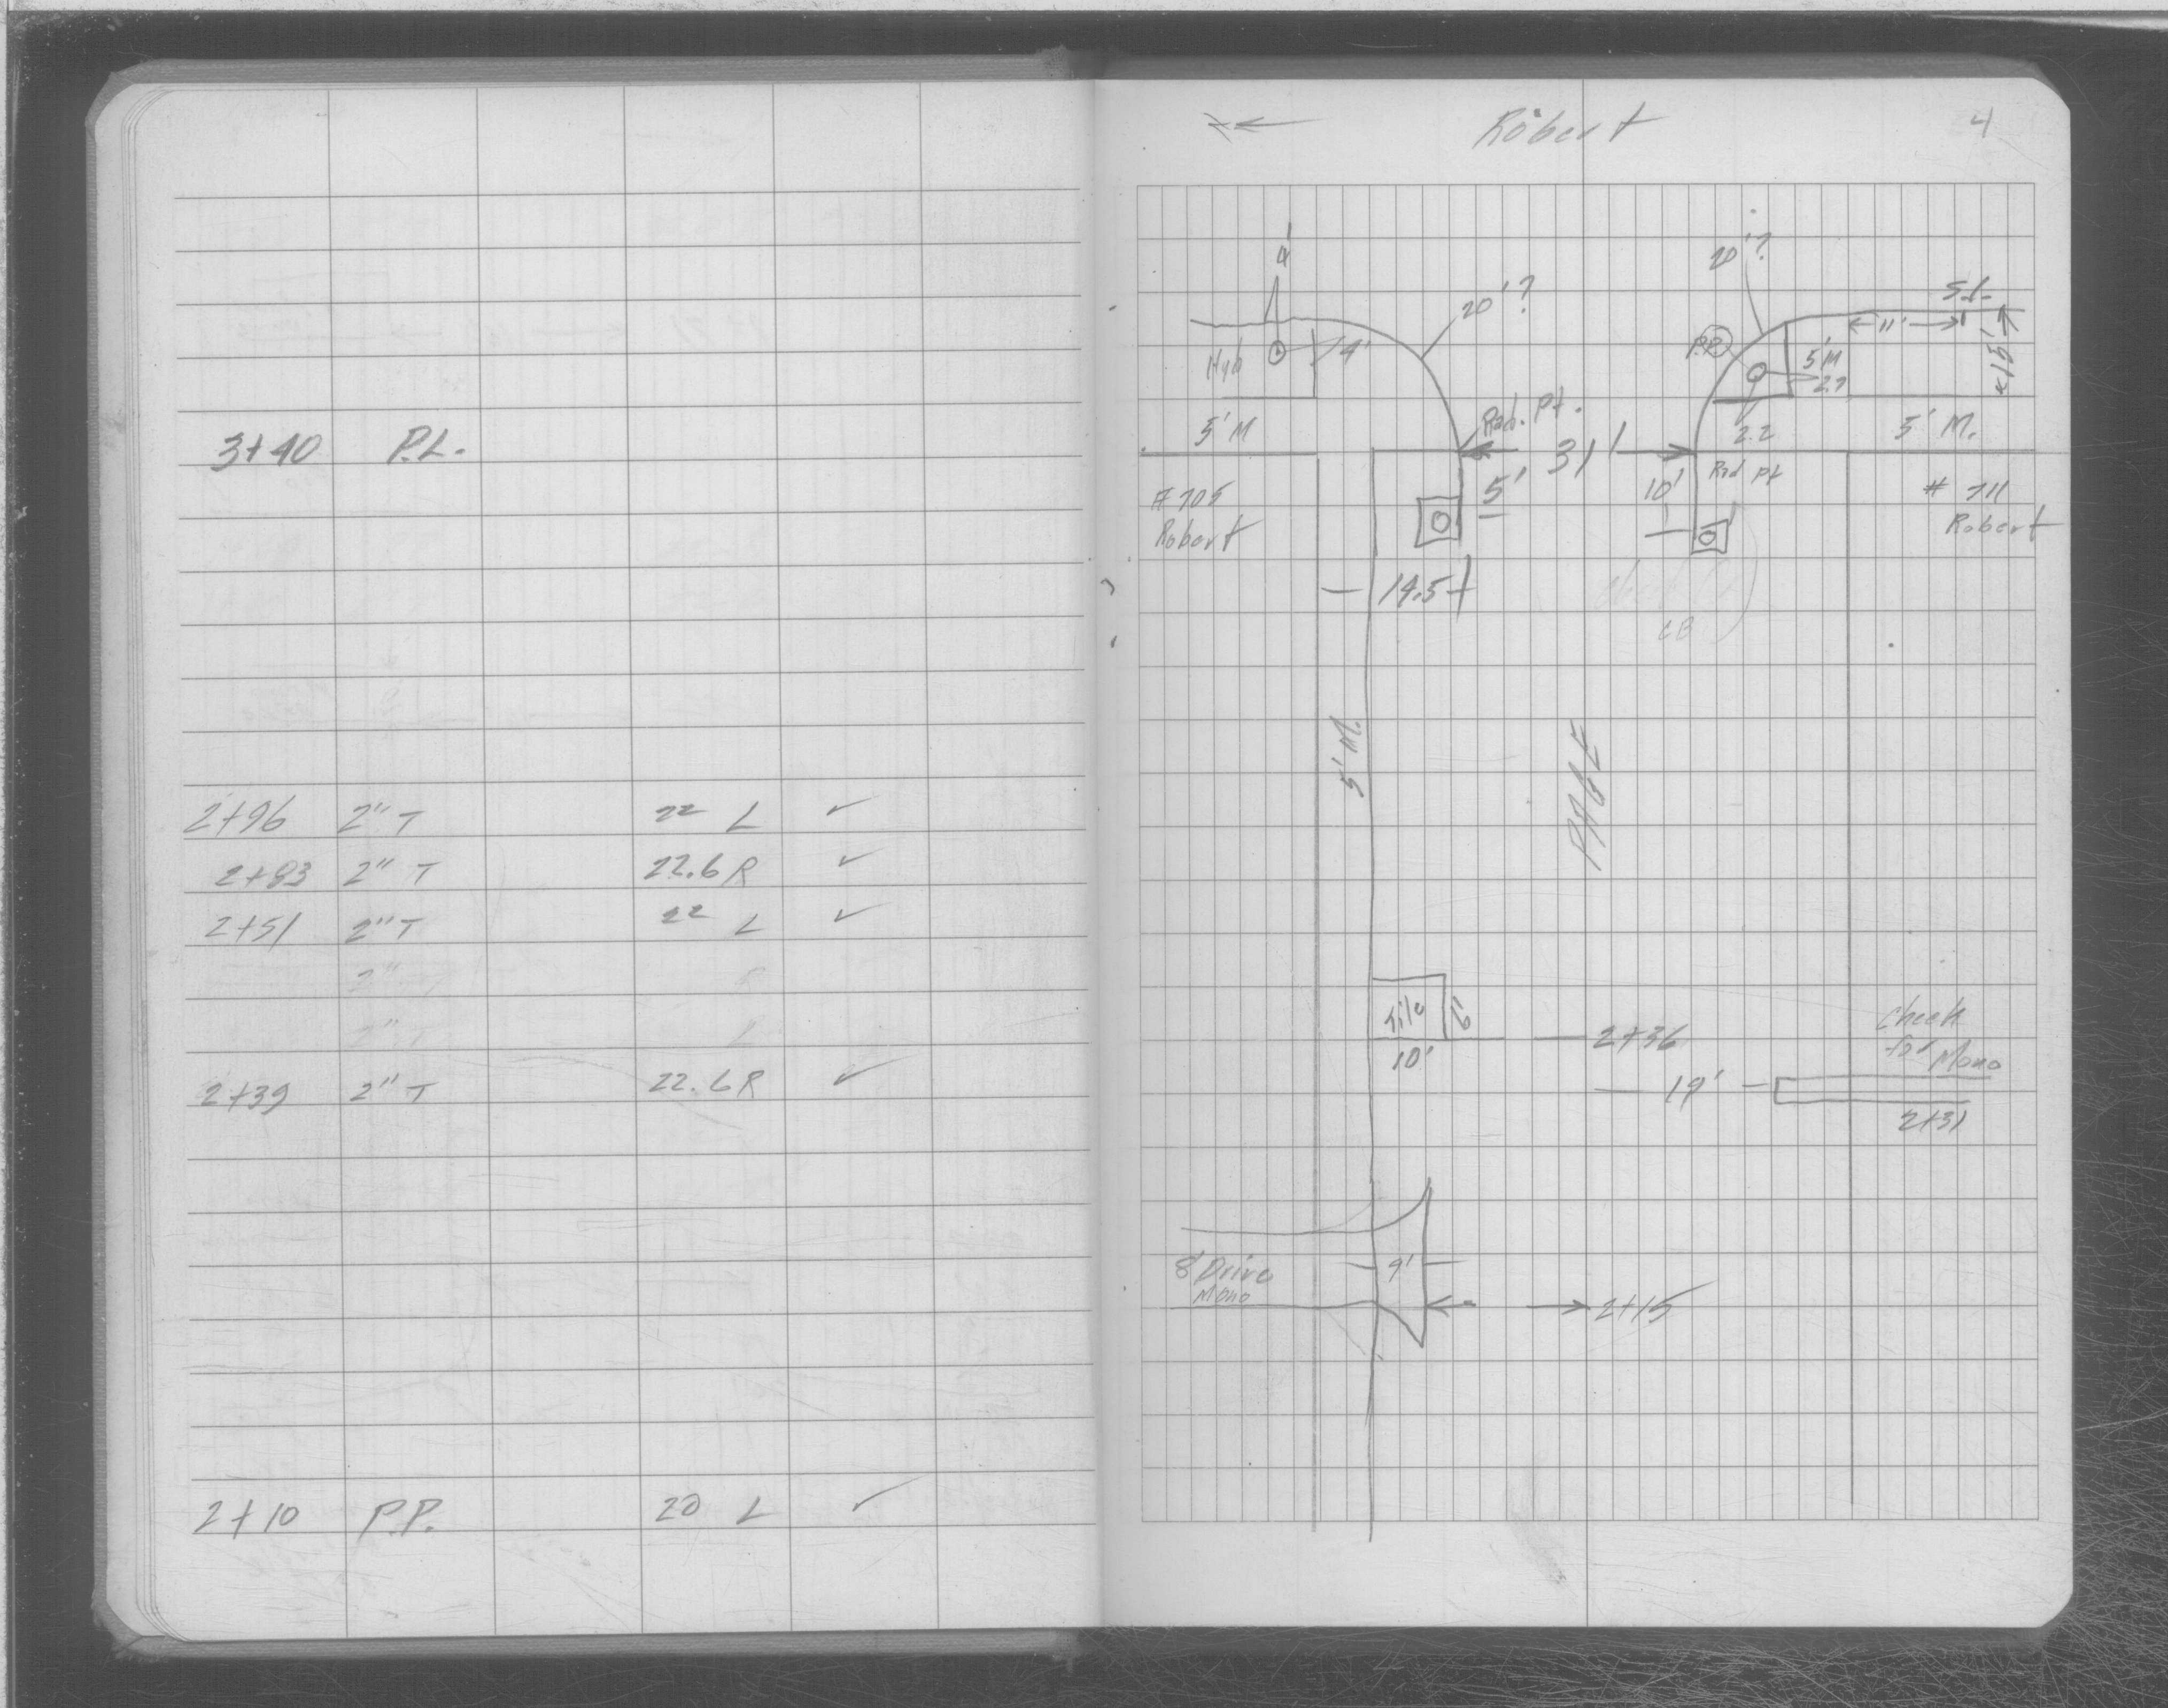 3+40 P.L.
2+96 2" T 22 L ✓
2+83 2" T 22.6 R ✓
2+51 2" T 22 L ✓
2" T R
2" T L
2+39 2" T 22.6 R ✓
2+10 P.P. 20 L ✓
Robert 4
4'
20'?
20'?
S.L.
11'
15'
Hyd
4'
P.P.
5' M
2.7
2.2
5' M
Rad. Pt.
31'
5' M.
# 705
Robert
5'
10'
Rad Pt
# 711
Robert
14.5
CB
5' M.
PAGE
Tile
6'
10'
2+36
Check
for Mono
19'
2+31
8' Drive
Mono
9'
2+15